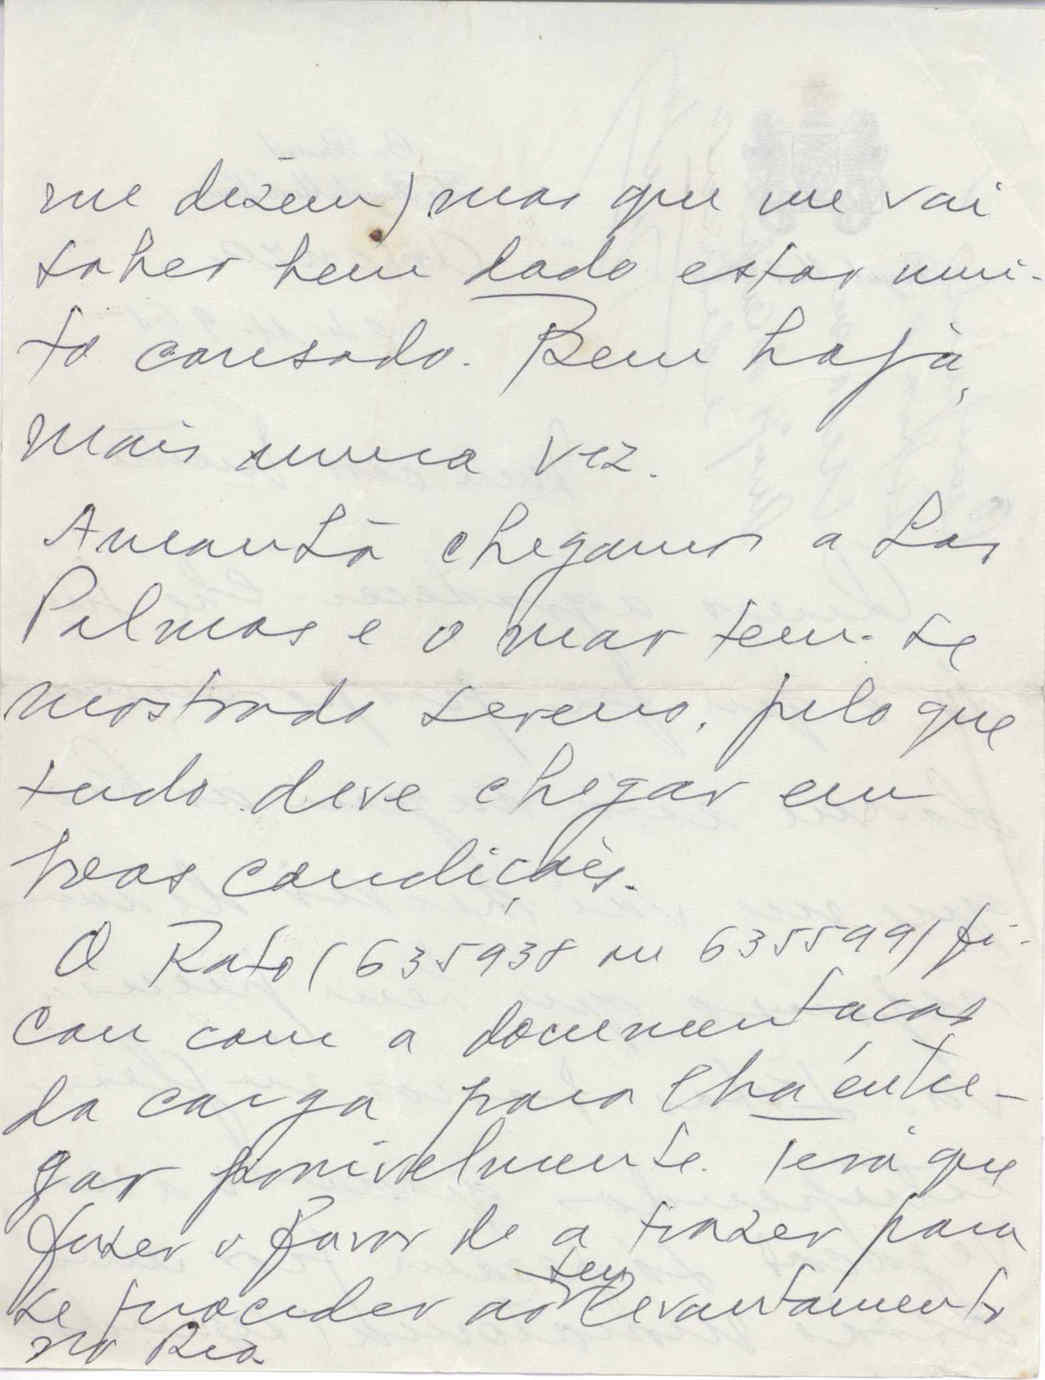 me dizem) mas que me vai
saber bem dado estar mui-
to cansado. Bem haja,
mais uma vez.
Amanhã chegamos a Las
Palmas e o mar tem-se
mostrado sereno, pelo que
tudo deve chegar em
boas condições.
O Rato (635938 ou 635599) fi-
cou com a documentação
da carga para lha entre-
gar possivelmente. Terá que
fazer o favor de a trazer para
se proceder ao seu levantamento
no Rio